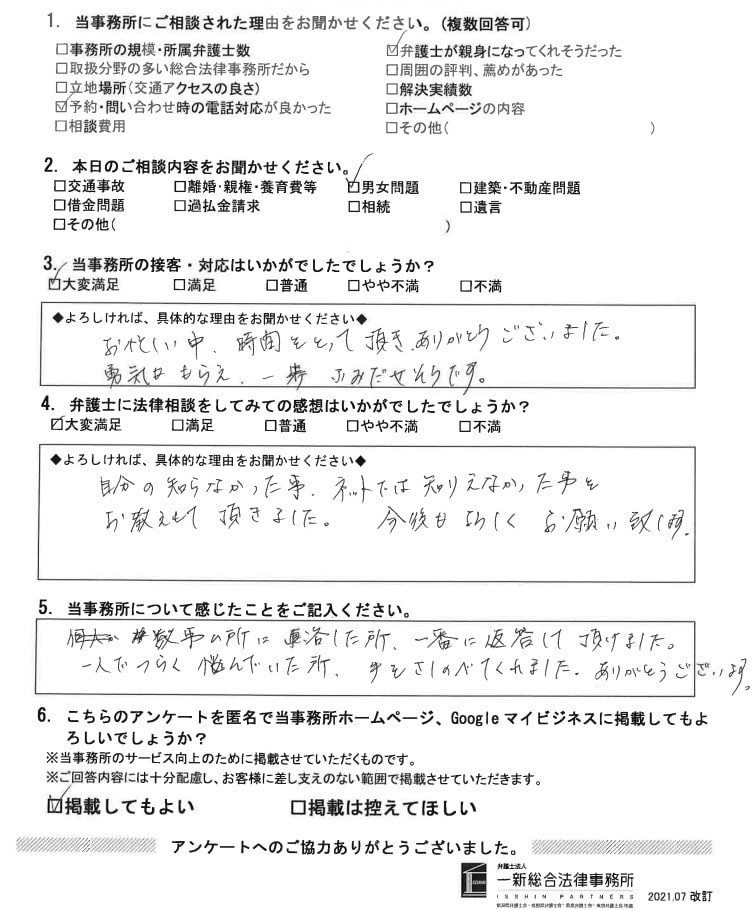 1. 当事務所にご相談された理由をお聞かせください。(複数回答可)
□事務所の規模・所属弁護士数 ☑弁護士が親身になってくれそうだった
□取扱分野の多い総合法律事務所だから □周囲の評判、薦めがあった
□立地場所(交通アクセスの良さ) □解決実績数
☑予約・問い合わせ時の電話対応が良かった □ホームページの内容
□相談費用 □その他( )
2. 本日のご相談内容をお聞かせください。
□交通事故 □離婚・親権・養育費等 ☑男女問題 □建築・不動産問題
□借金問題 □過払金請求 □相続 □遺言
□その他( )
3. 当事務所の接客・対応はいかがでしたでしょうか?
☑大変満足 □満足 □普通 □やや不満 □不満
◆よろしければ、具体的な理由をお聞かせください◆
お忙しい中、時間をとって頂き、ありがとうございました。
勇気をもらえ、一歩ふみだせそうです。
4. 弁護士に法律相談をしてみての感想はいかがでしたでしょうか?
☑大変満足 □満足 □普通 □やや不満 □不満
◆よろしければ、具体的な理由をお聞かせください◆
自分の知らなかった事、ネットでは知りえなかった事を
お教えして頂きました。 今後もよろしくお願い致します。
5. 当事務所について感じたことをご記入ください。
数事の所に連絡した所、一番に返答して頂けました。
一人でつらく悩んでいた所、手をさしのべてくれました。ありがとうございます。
6. こちらのアンケートを匿名で当事務所ホームページ、Googleマイビジネスに掲載してもよ
ろしいでしょうか?
※当事務所のサービス向上のために掲載させていただくものです。
※ご回答内容には十分配慮し、お客様に差し支えのない範囲で掲載させていただきます。
☑掲載してもよい □掲載は控えてほしい
アンケートへのご協力ありがとうございました。
弁護士法人
一新総合法律事務所
ISSHIN PARTNERS
2021.07 改訂